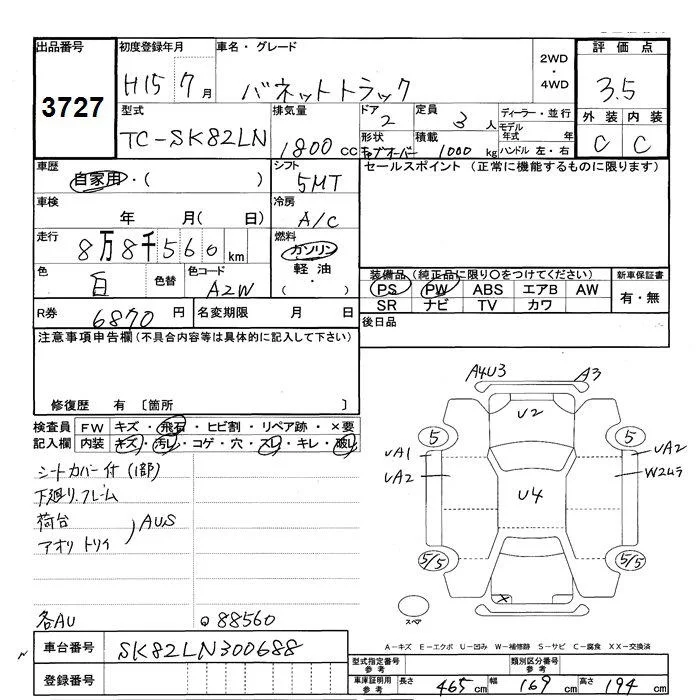 出品番号
3727
初度登録年月
H15 7月
車名・グレード
バネットトラック
2WD
・
4WD
評価点
3.5
外装 内装
C C
型式
TC-SK82LN
排気量
1800 cc
ドア
2
定員
3 人
ディーラー・並行
モデル年式 年
形状
積載
1000 kg
ハンドル 左・右
車歴
自家用・( )
シフト
5MT
セールスポイント (正常に機能するものに限ります)
車検
年 月( 日)
冷房
A/C
走行
8万8千560km
燃料
ガソリン
軽油
・
( )
色
白
色替
色コード
A2W
装備品(純正品に限り○をつけてください)
新車保証書
PS PW ABS エアB AW
SR ナビ TV カワ
有・無
R券 6870 円
名変期限 月 日
後日品
注意事項申告欄(不具合内容等は具体的に記入して下さい)
修復歴 有 〔箇所
検査員
記入欄
FW キズ・飛石・ヒビ割・リペア跡・×要
内装 キズ・汚レ・コゲ・穴・スレ・キレ・破レ
シートカバー付(1部)
下廻り.フレーム
荷台
アオリ トリイ
AUS
各AU
Q 88560
A4U3
A3
U2
5
5
UA1
UA2
UA2
W2ムラ
U4
5/5
5/5
×
スペア
A-キズ E-エクボ U-凹み W-補修跡 S-サビ C-腐食 XX-交換済
車台番号
SK82LN300688
登録番号
型式指定番号
参考
類別区分番号
参考
車庫証明用
参考
長さ 465 cm
幅 169 cm
高さ 194 cm